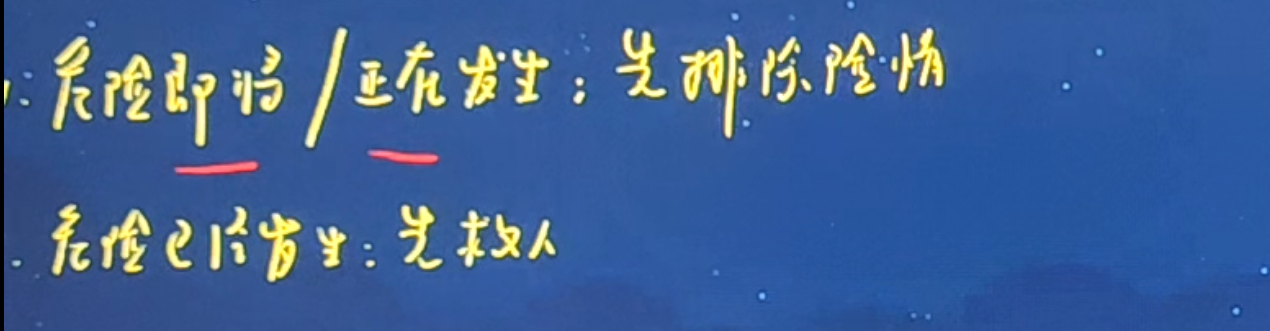 危险即将/正在发生:先排除险情
危险已经发生:先救人